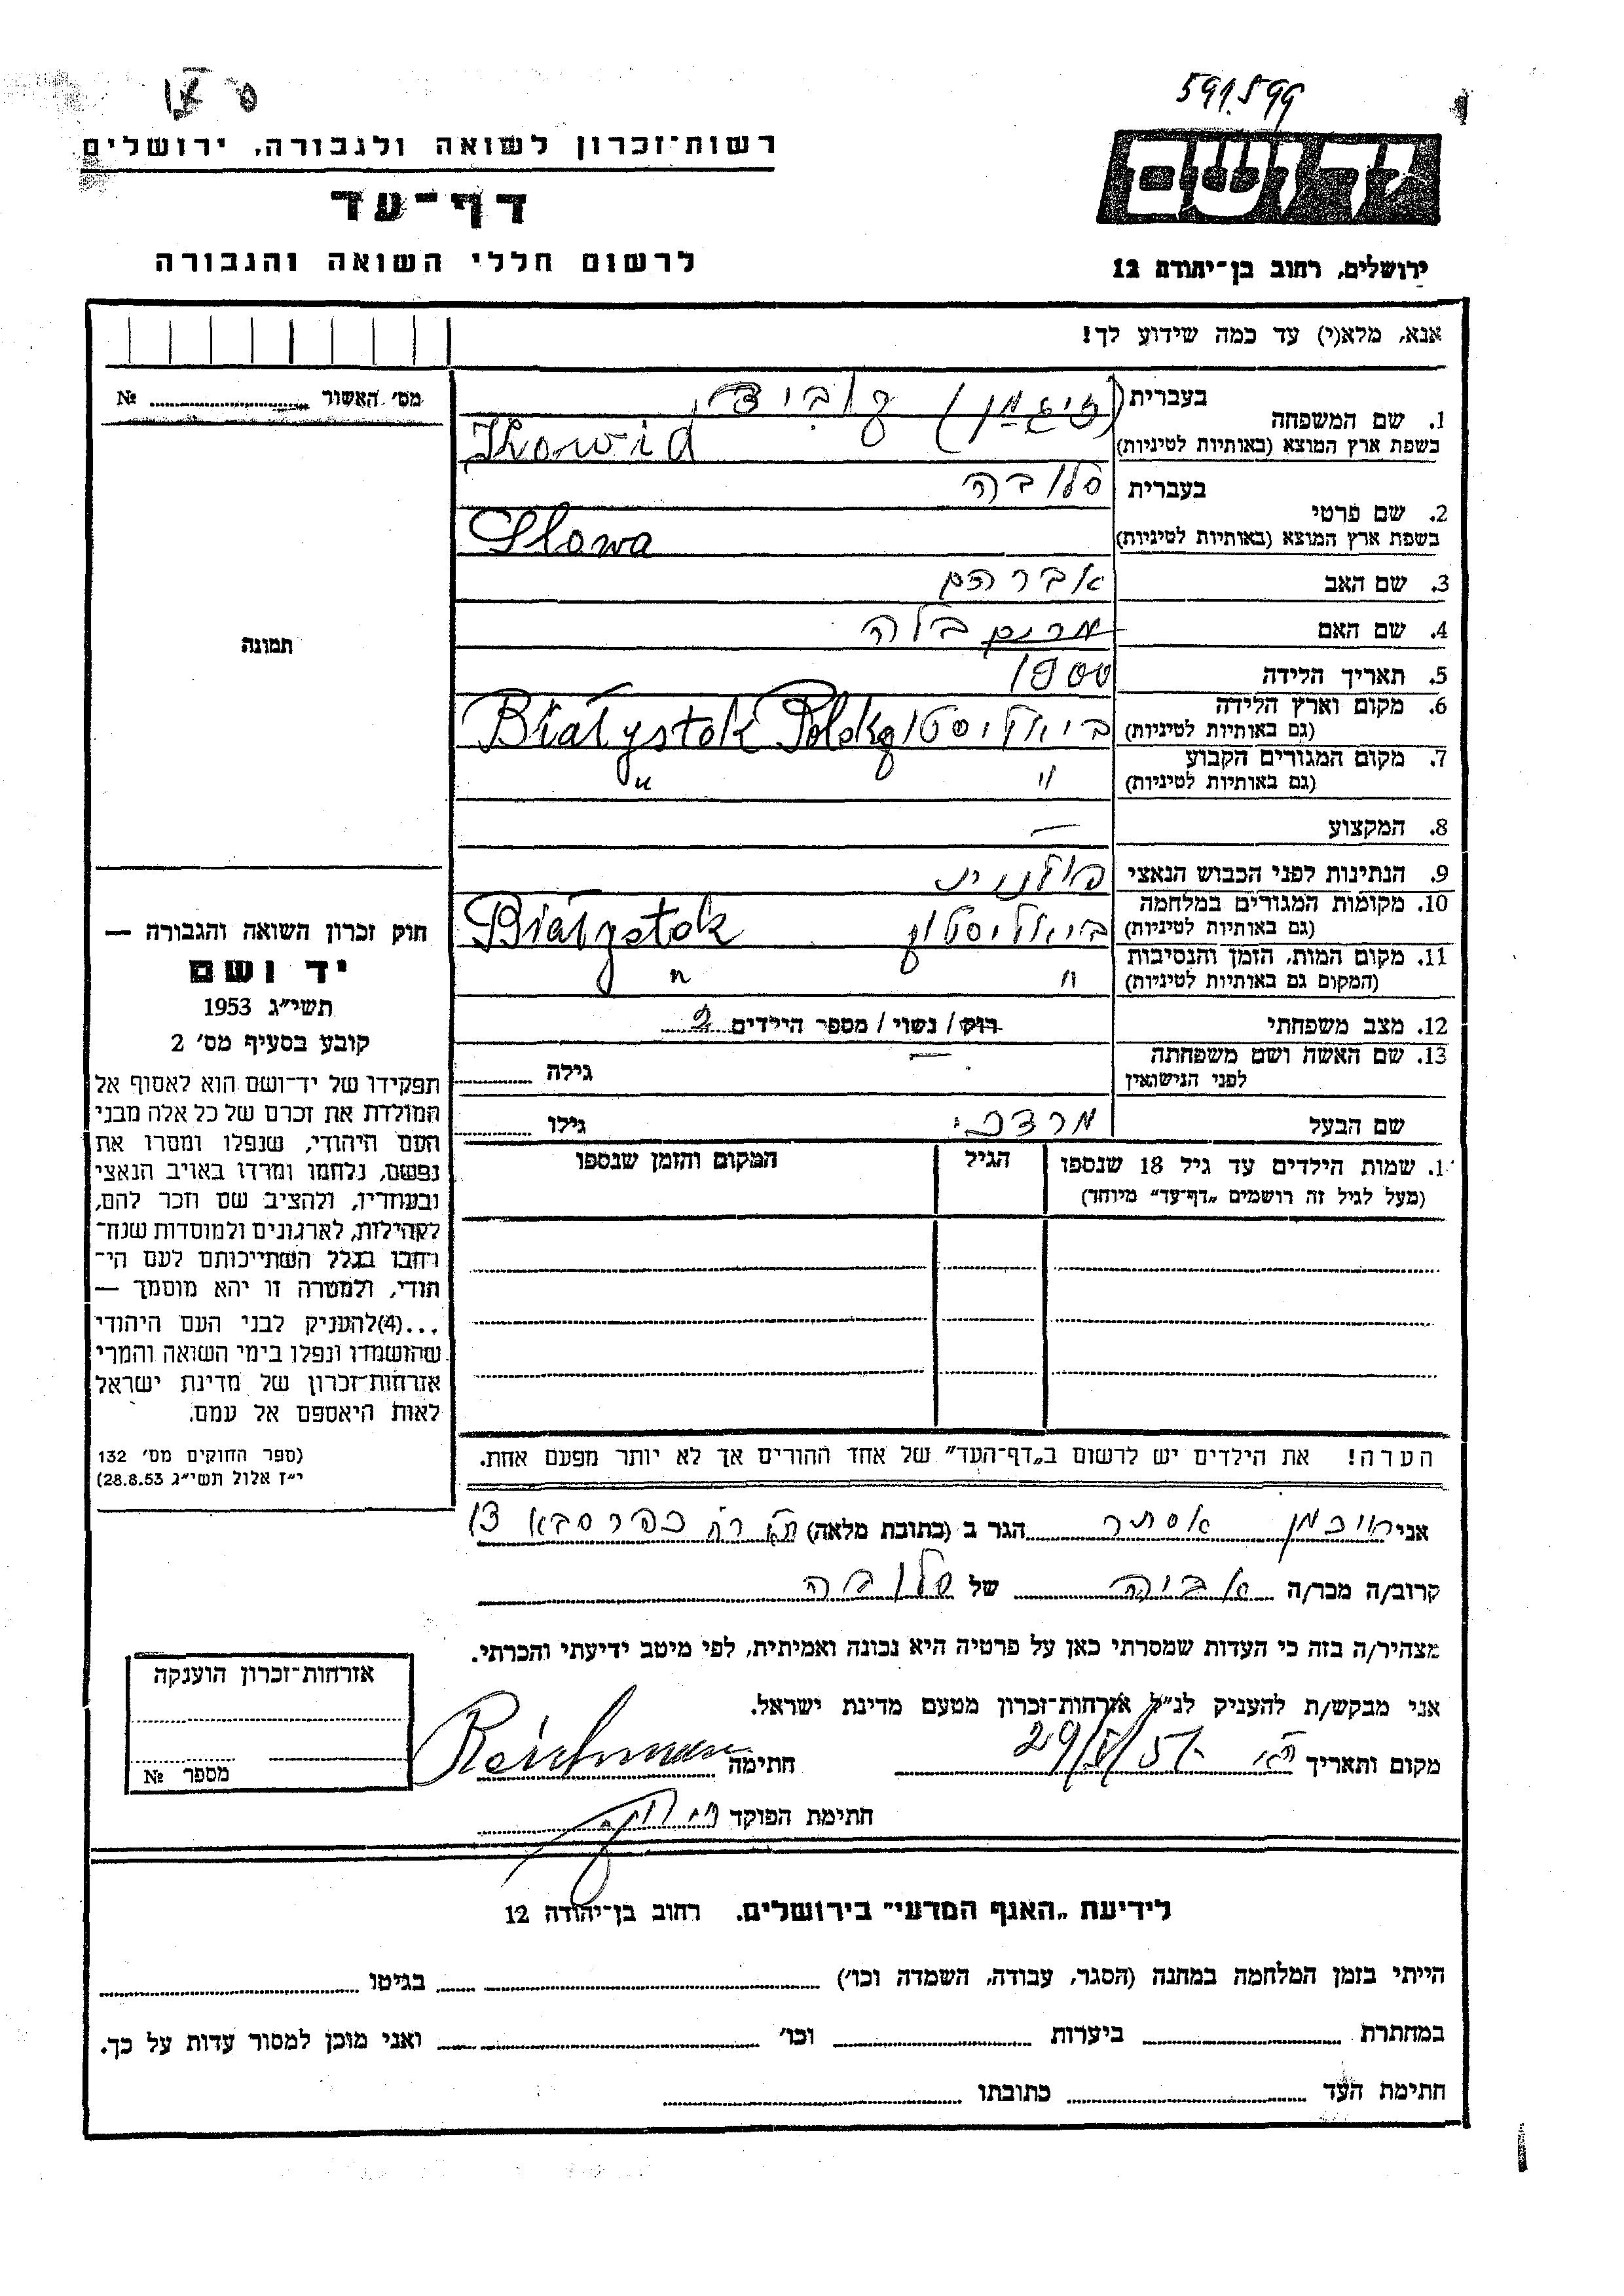 591.599
רשות־זכרון לשואה ולגבורה, ירושלים
דף־עד
לרשום חללי השואה והגבורה
ידושם
ירושלים, רחוב בן־יהודה 12
אנא, מלא(י) עד כמה שידוע לך!
מס׳ האשור № 
1. שם המשפחה בעברית
בשפת ארץ המוצא (באותיות לטיניות)
2. שם פרטי בעברית סלובה
בשפת ארץ המוצא (באותיות לטיניות) Slowa
3. שם האב אברהם
4. שם האם מרים בלה
5. תאריך הלידה 1900
6. מקום וארץ הלידה ביאליסטוק Białystok Polska
(גם באותיות לטיניות)
7. מקום המגורים הקבוע " "
(גם באותיות לטיניות)
8. המקצוע —
9. הנתינות לפני הכבוש הנאצי פולנית
10. מקומות המגורים במלחמה ביאליסטוק Białystok
(גם באותיות לטיניות)
11. מקום המות, הזמן והנסיבות " "
(המקום גם באותיות לטיניות)
12. מצב משפחתי רווק / נשוי / מספר הילדים 2
13. שם האשה ושם משפחתה — גילה
לפני הנישואין
שם הבעל מרדכי גילו
1. שמות הילדים עד גיל 18 שנספו הגיל המקום והזמן שנספו
(מעל לגיל זה רושמים „דף־עד” מיוחד)
הערה! את הילדים יש לרשום ב„דף־העד” של אחד ההורים אך לא יותר מפעם אחת.
תמונה
חוק זכרון השואה והגבורה —
יד ושם
תשי״ג 1953
קובע בסעיף מס׳ 2
תפקידו של יד־ושם הוא לאסוף אל
המולדת את זכרם של כל אלה מבני
העם היהודי, שנפלו ומסרו את
נפשם, נלחמו ומרדו באויב הנאצי
ובעוזריו, ולהציב שם וזכר להם,
לקהילות, לארגונים ולמוסדות שנח־
רבו בגלל השתייכותם לעם הי־
הודי, ולמטרה זו יהא מוסמך —
...(4)להעניק לבני העם היהודי
שהושמדו ונפלו בימי השואה והמרי
אזרחות־זכרון של מדינת ישראל
לאות היאספם אל עמם.
(ספר החוקים מס׳ 132
י״ז אלול תשי״ג 28.8.53)
אני רייכמן אסתר הגר ב (כתובת מלאה) כפר סבא 13
קרוב/ה מכר/ה של סלובה
מצהיר/ה בזה כי העדות שמסרתי כאן על פרטיה היא נכונה ואמיתית, לפי מיטב ידיעתי והכרתי.
אני מבקש/ת להעניק לנ״ל אזרחות־זכרון מטעם מדינת ישראל.
מקום ותאריך חתימה Reichman
חתימת הפוקד
אזרחות־זכרון הוענקה
מספר №
לידיעת „האגף המדעי” בירושלים. רחוב בן־יהודה 12
הייתי בזמן המלחמה במחנה (הסגר, עבודה, השמדה וכו׳) בגיטו
במחתרת ביערות וכו׳ ואני מוכן למסור עדות על כך.
חתימת העד כתובתו